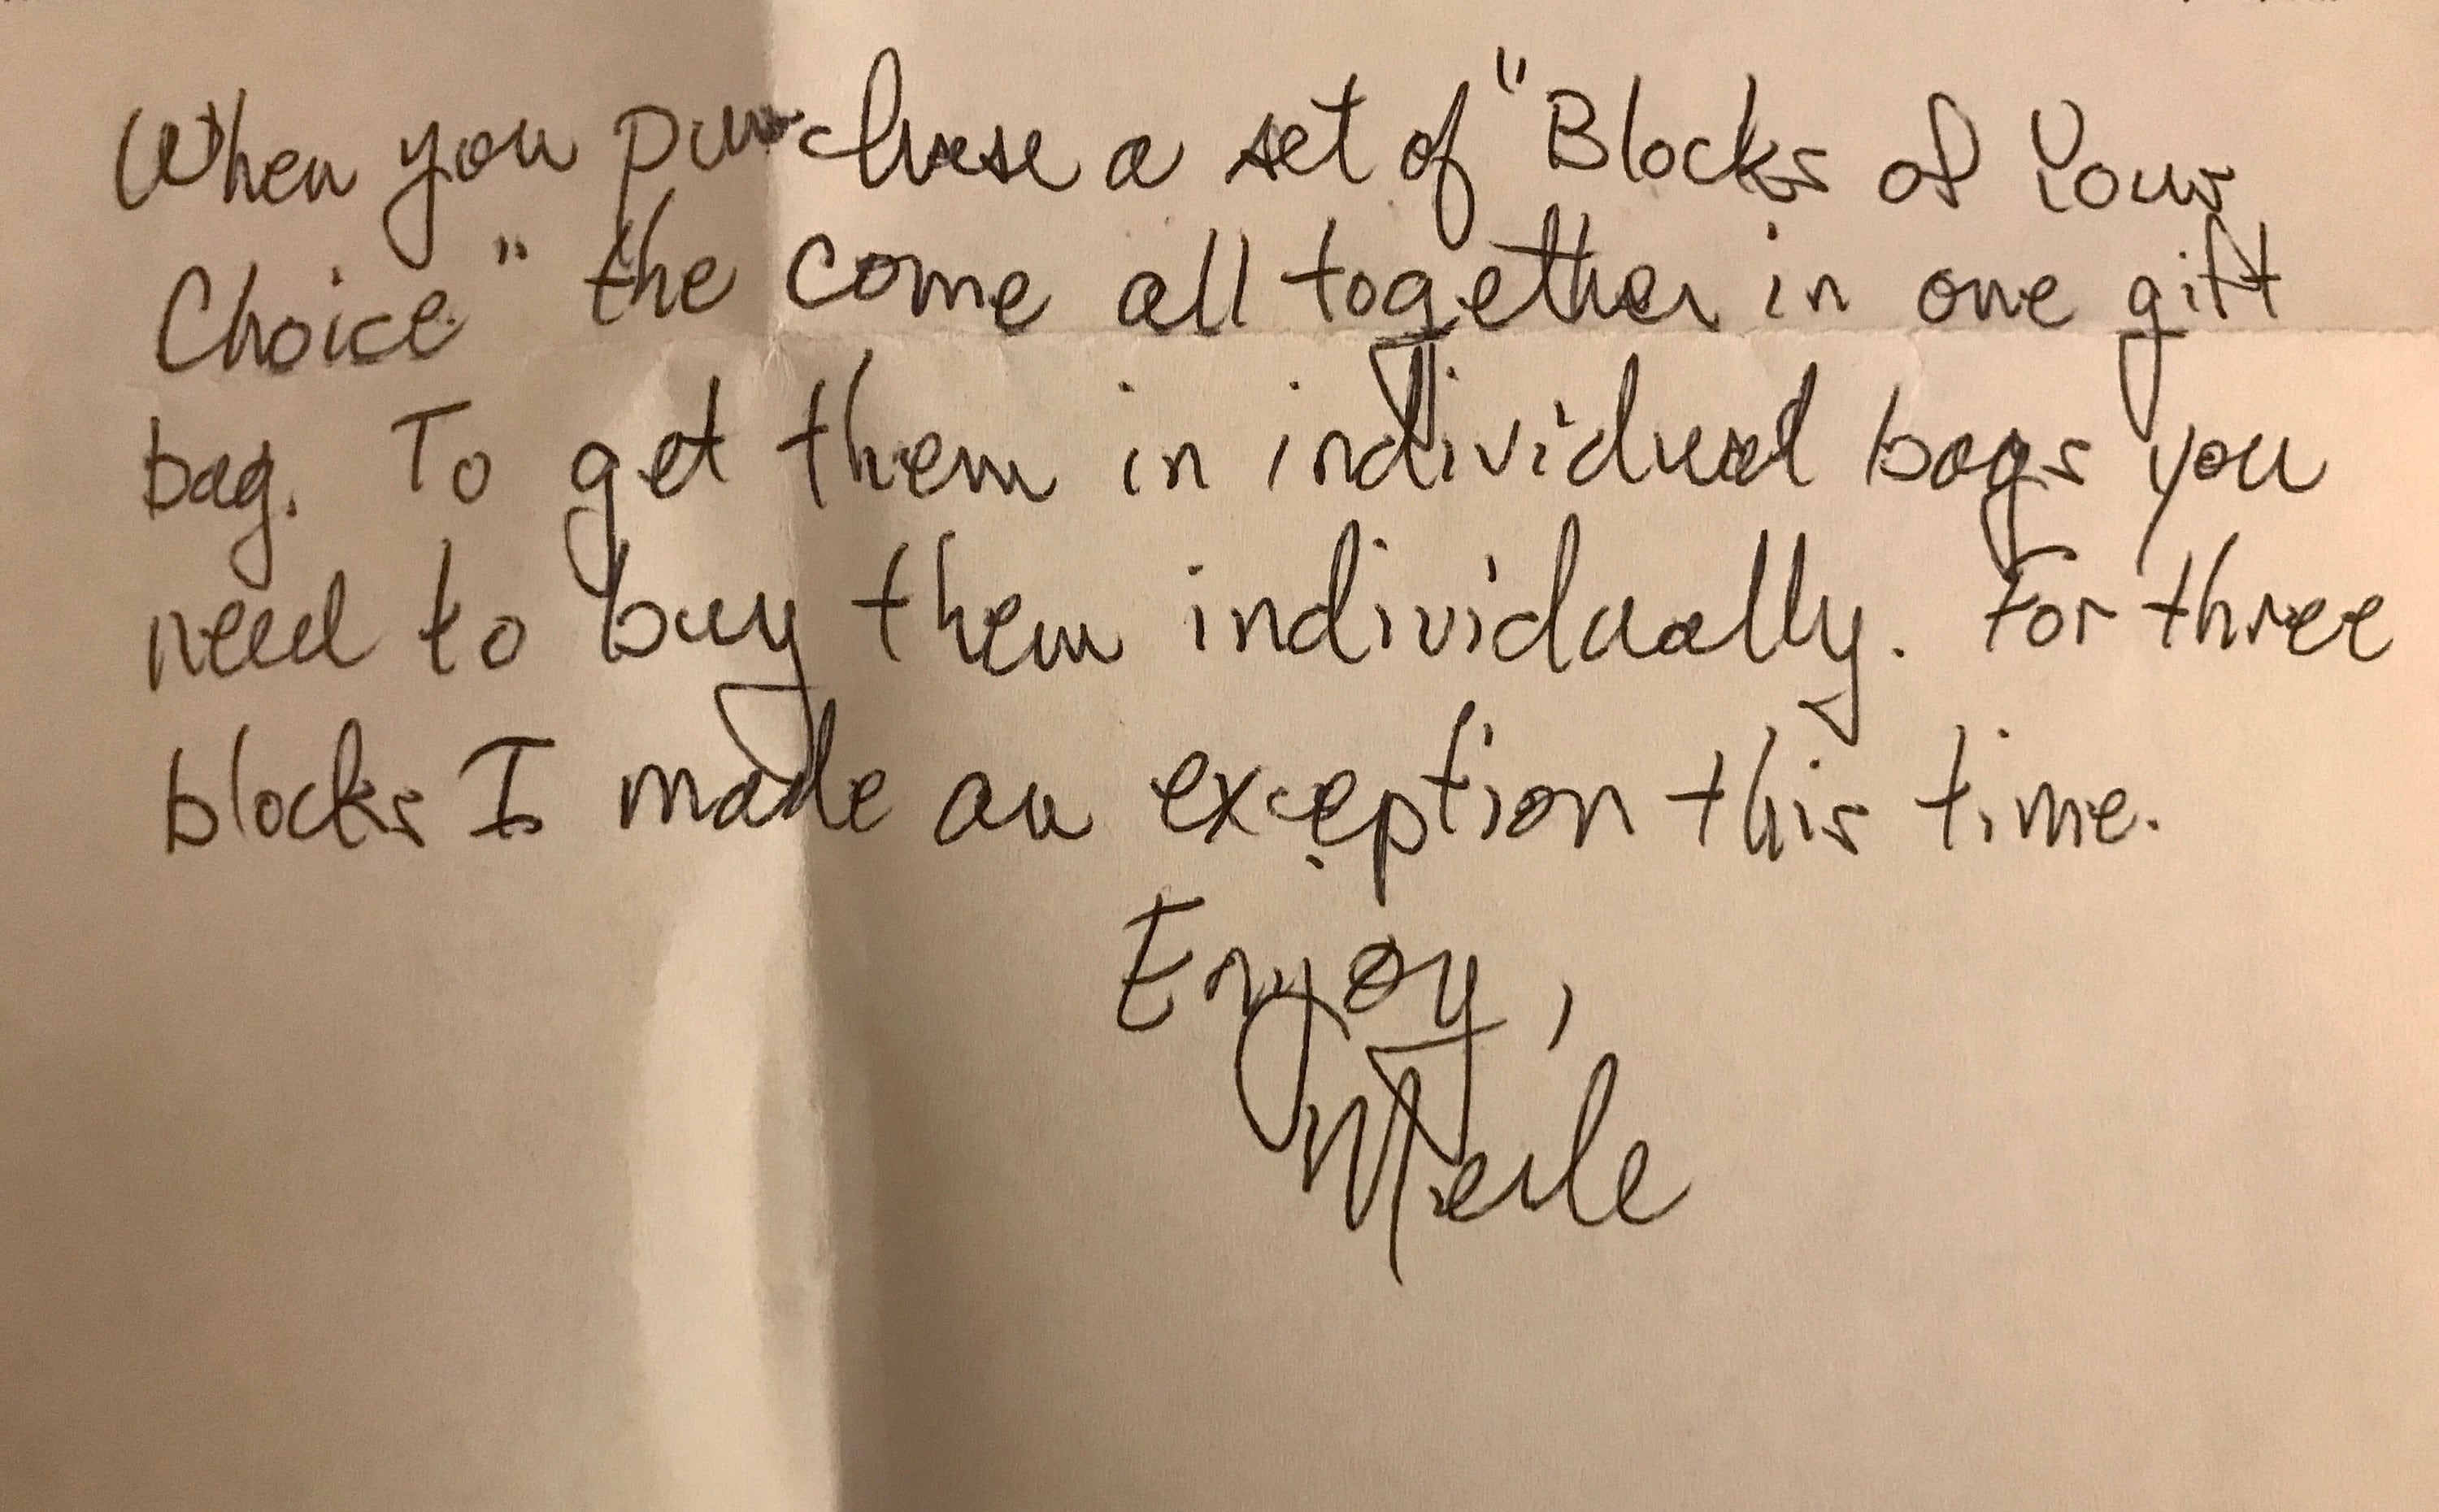 When you purchase a set of "Blocks of Your
Choice" the come all together in one gift
bag. To get them in individual bags you
need to buy them individually. For three
blocks I made an exception this time.
Enjoy,